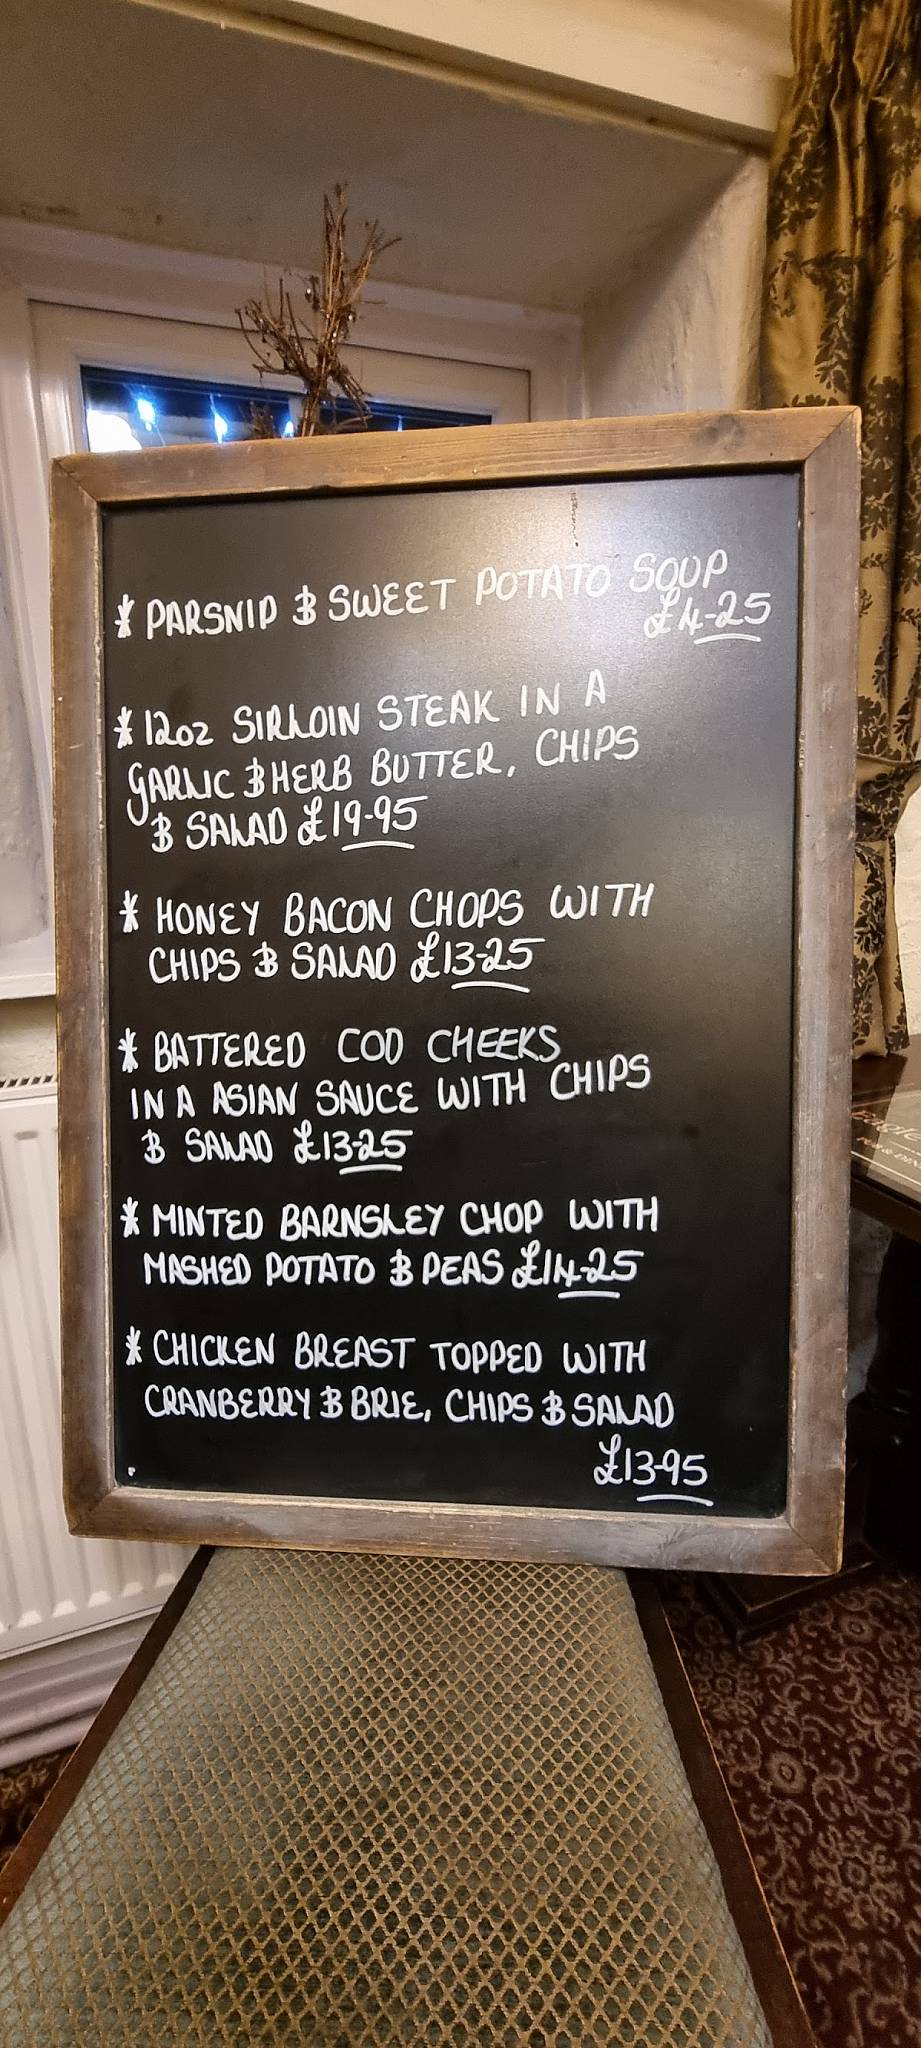 * PARSNIP & SWEET POTATO SOUP
£4-25
* 12oz SIRLOIN STEAK IN A
GARLIC & HERB BUTTER, CHIPS
& SALAD £19-95
* HONEY BACON CHOPS WITH
CHIPS & SALAD £13-25
* BATTERED COD CHEEKS
IN A ASIAN SAUCE WITH CHIPS
& SALAD £13-25
* MINTED BARNSLEY CHOP WITH
MASHED POTATO & PEAS £14-25
* CHICKEN BREAST TOPPED WITH
CRANBERRY & BRIE, CHIPS & SALAD
£13-95